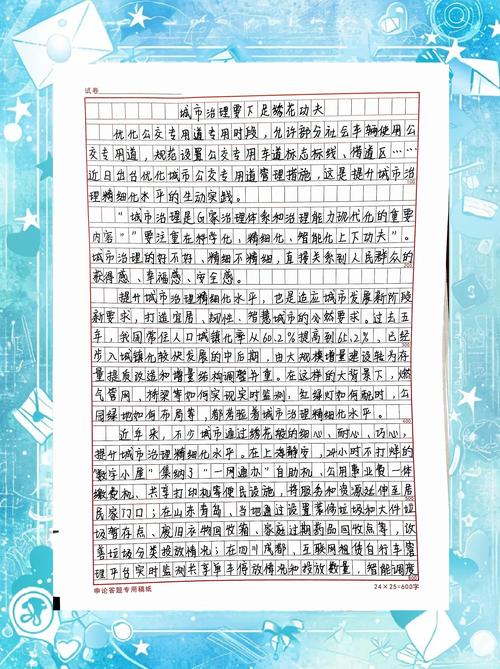 试卷
城市治理要下足绣花功夫
优化公交专用道专用时段，允许部分社会车辆使用公
交专用道，规范设置公交专用车道标志标线、借道区……
近日出台优化城市公交专用道管理措施，这是提升城市治
理精细化水平的生动实践。
“城市治理是国家治理体系和治理能力现代化的重要
内容”“要注重在科学化、精细化、智能化上下功夫”。
城市治理的好不好、精细不精细，直接关系到人民群众的
获得感、幸福感、安全感。
提升城市治理精细化水平，也是适应城市发展新阶段
新要求，打造宜居、韧性、智慧城市的必然要求。过去五
年，我国常住人口城镇化率从60.2%提高到65.2%，已经
步入城镇化较快发展的中后期，由大规模增量建设转为存
量提质改造和增量结构调整并重。在这样的大背景下，燃
气管网、桥梁等如何实现实时监测，红绿灯如何配时，公
园绿地如何布局等，都考验着城市治理精细化水平。
近年来，不少城市通过绣花般的细心、耐心、巧心，
提升城市治理精细化水平。在上海静安，24小时不打烊的
“数字小屋”集纳了“一网通办”自助机、公用事业费一体
缴费机、共享打印机等便民设施，将服务和资源延伸至居
民家门口；在山东青岛，当地通过设置装修垃圾和大件垃
圾暂存点、废旧衣物回收箱、家庭过期药品回收点等，改
善垃圾分类投放情况；在四川成都，互联网租赁自行车管
理平台实时监测共享单车停放情况和投放数量，智能调度
100
200
300
400
500
600
申论答题专用稿纸
24×25=600字